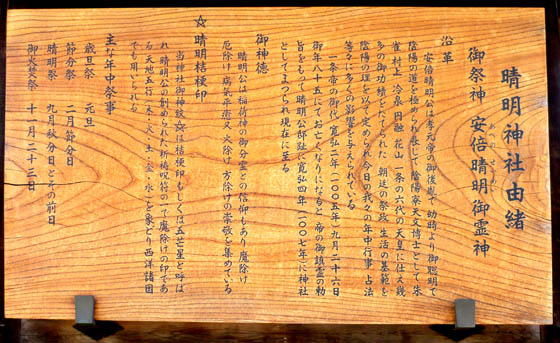 晴明神社由緒
御祭神 安倍晴明 御霊神
あべの せいめい
沿革
安倍晴明公は孝元帝の御後胤で 幼時より御聡明で
陰陽の道を極められ長じて陰陽寮天文博士として 朱
雀 村上 冷泉 円融 花山 一条の六代の天皇に仕え幾
多の御功績をたてられた 朝廷の祭政 生活の基範を
陰陽の理を以て定められ今日の我々の年中行事 占法
等々に多くの影響を与えられている
御年八十五にてお亡くなりになると 帝の御鎮霊の勅
一条帝の御代 寛弘二年(一〇〇五年)九月二十六日
旨をもって晴明公邸趾に寛弘四年(一〇〇七年)に神社
としてまつられ現在に至る
御神徳
晴明公は稲荷神の御分霊との信仰もあり 魔除け
厄除け 病気平癒又 火除け 方除けの崇敬を集めている
☆ 晴明桔梗印
当神社御神紋☆は桔梗印もしくは五芒星と呼ば
れ 晴明公の創められた祈祷呪符の一つで魔除けの印であ
る 天地五行(木・火・土・金・水)を象どり西洋諸国
でも用いられる
主な年中祭事
歳旦祭 元旦
節分祭 二月節分日
晴明祭 九月秋分日とその前日
御火焚祭 十一月二十三日